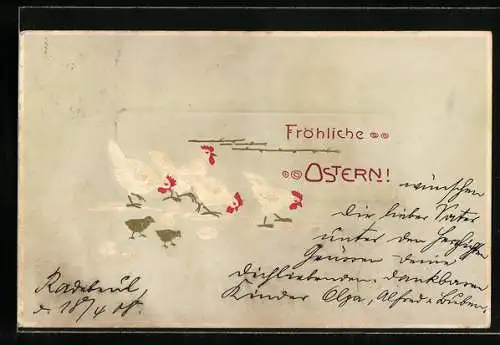 Fröhliche
OSTERN!
wünschen
Dir lieber Vater
unter den herzlichsten
Grüssen Deine
Dichliebenden dankbaren
Kinder Olga, Alfred u. Buben.
Radebeul,
d. 18/4 08.